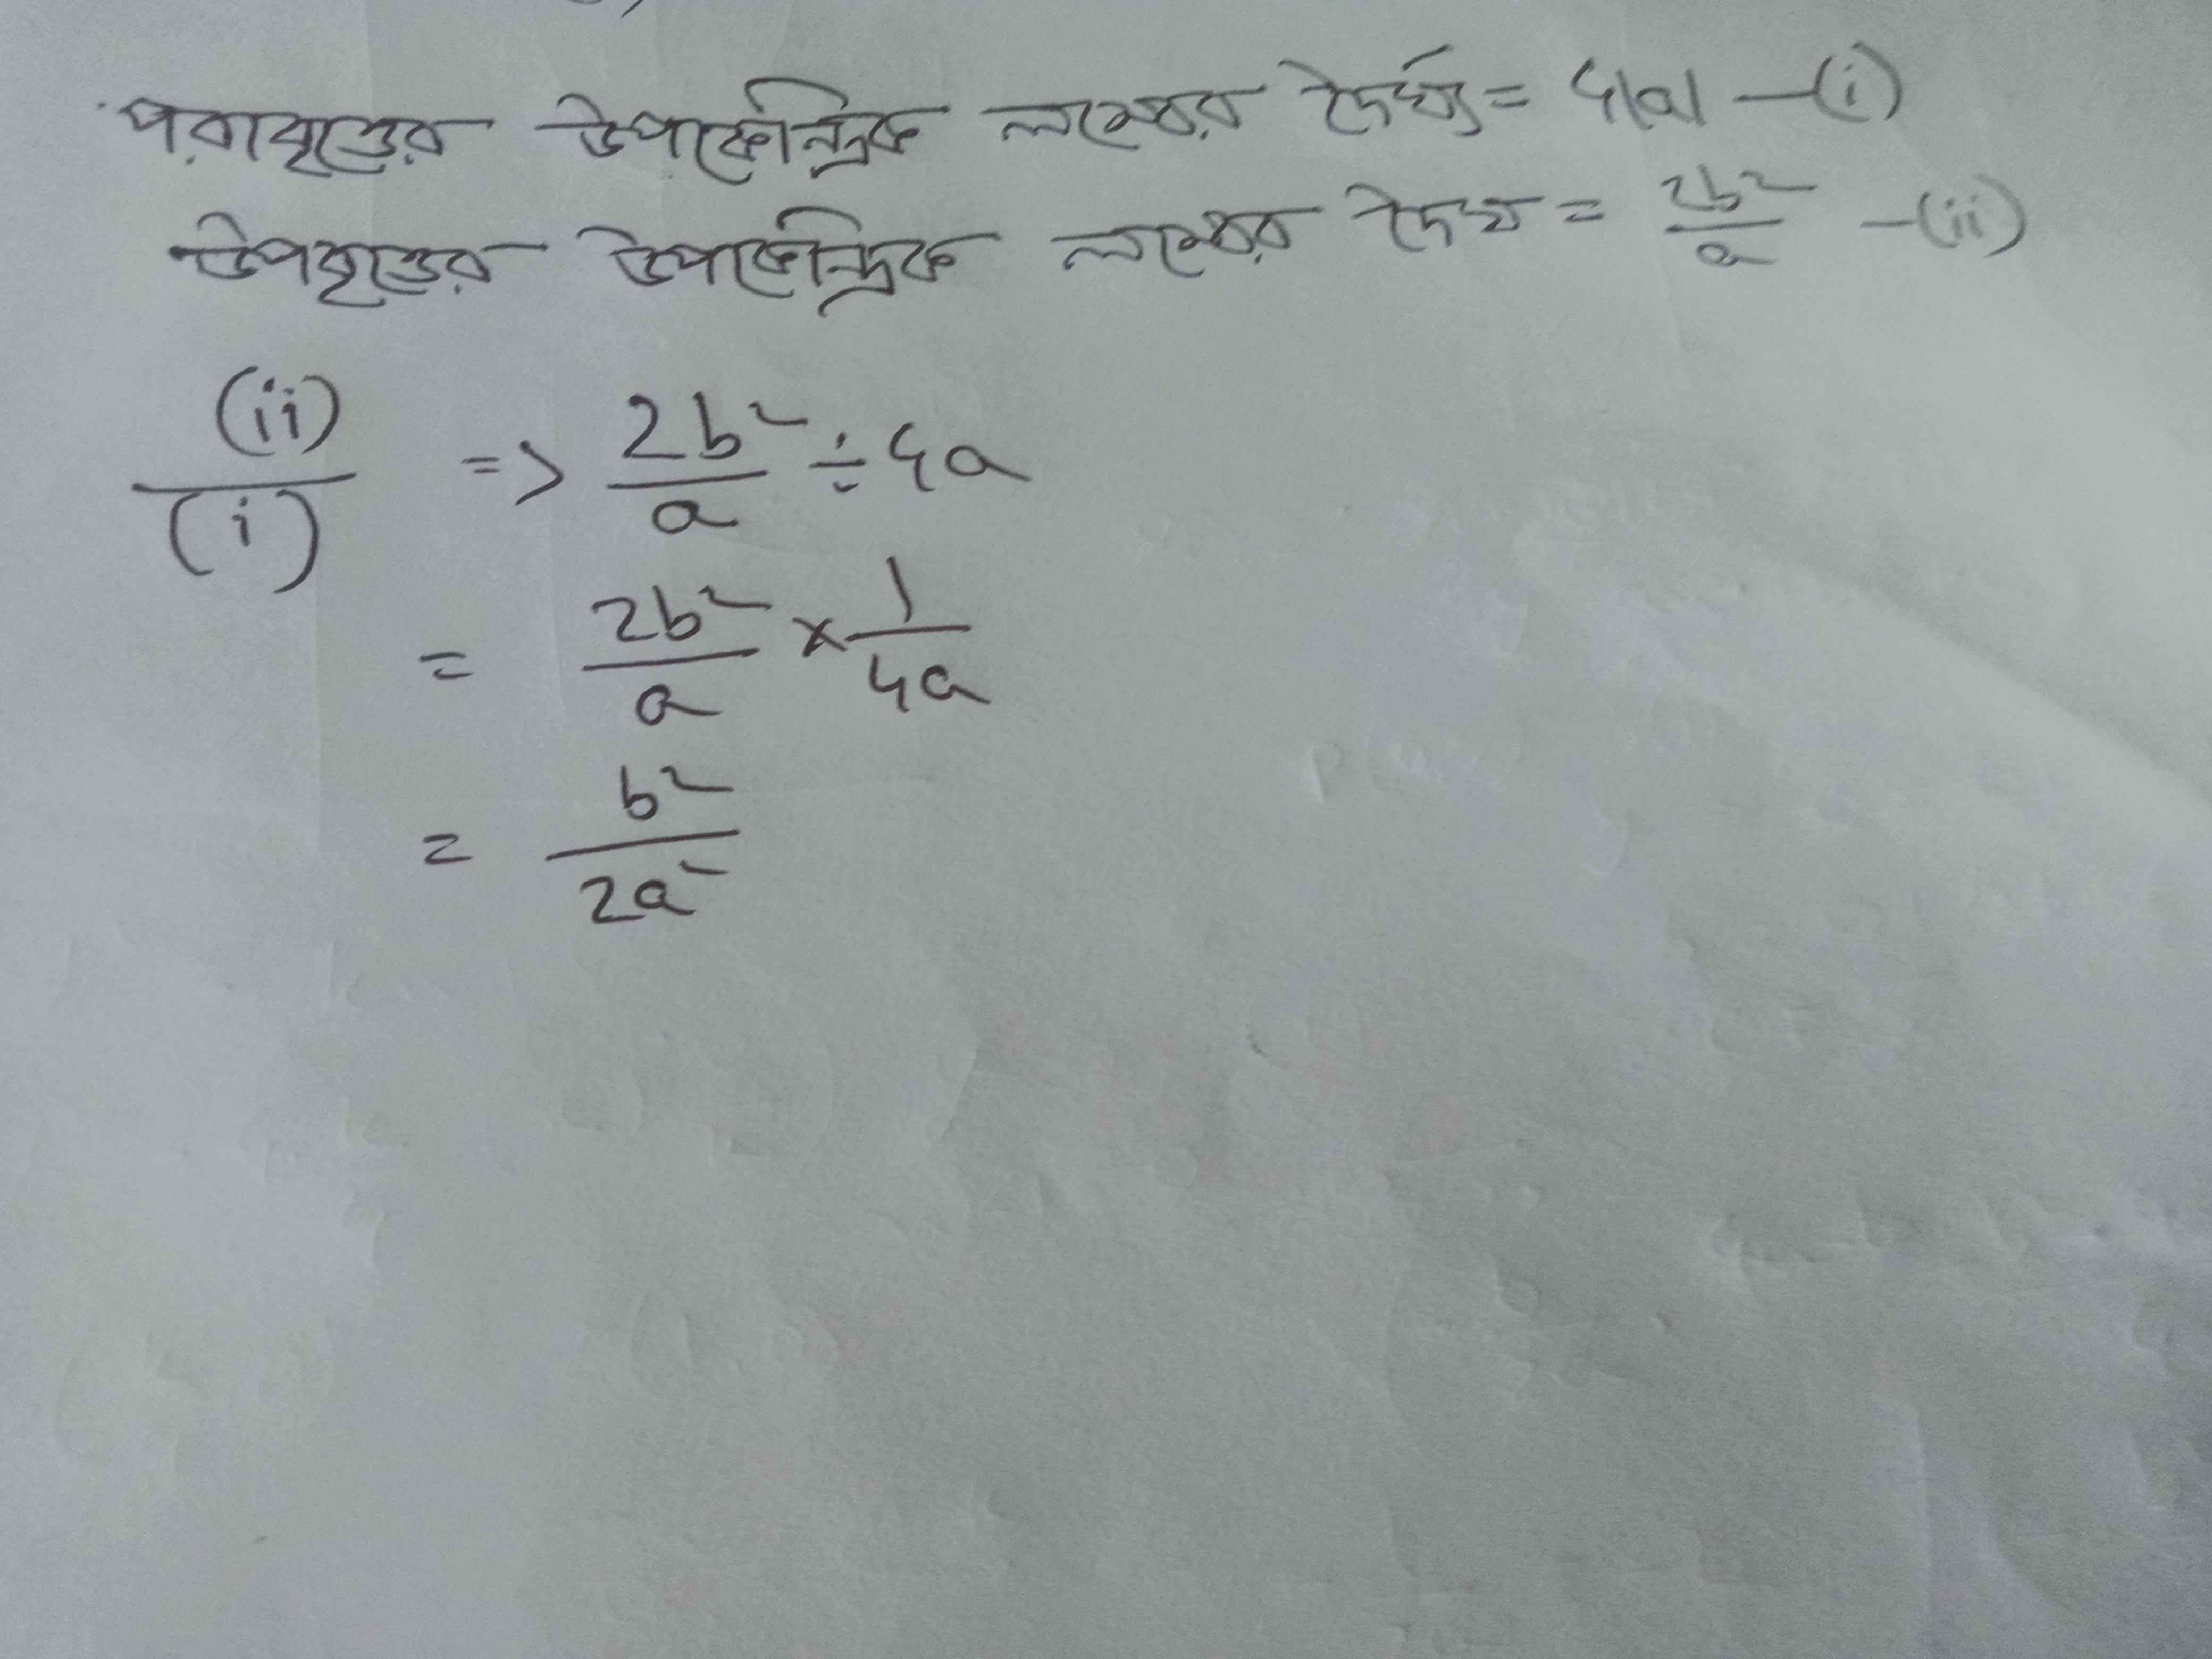 পরাবৃত্তের উপকেন্দ্রিক লম্বের দৈর্ঘ্য = 4|a| —(i)
উপবৃত্তের উপকেন্দ্রিক লম্বের দৈর্ঘ্য = 2b²/a —(ii)
(ii)/(i) => 2b²/a ÷ 4a
= 2b²/a × 1/4a
= b²/2a²